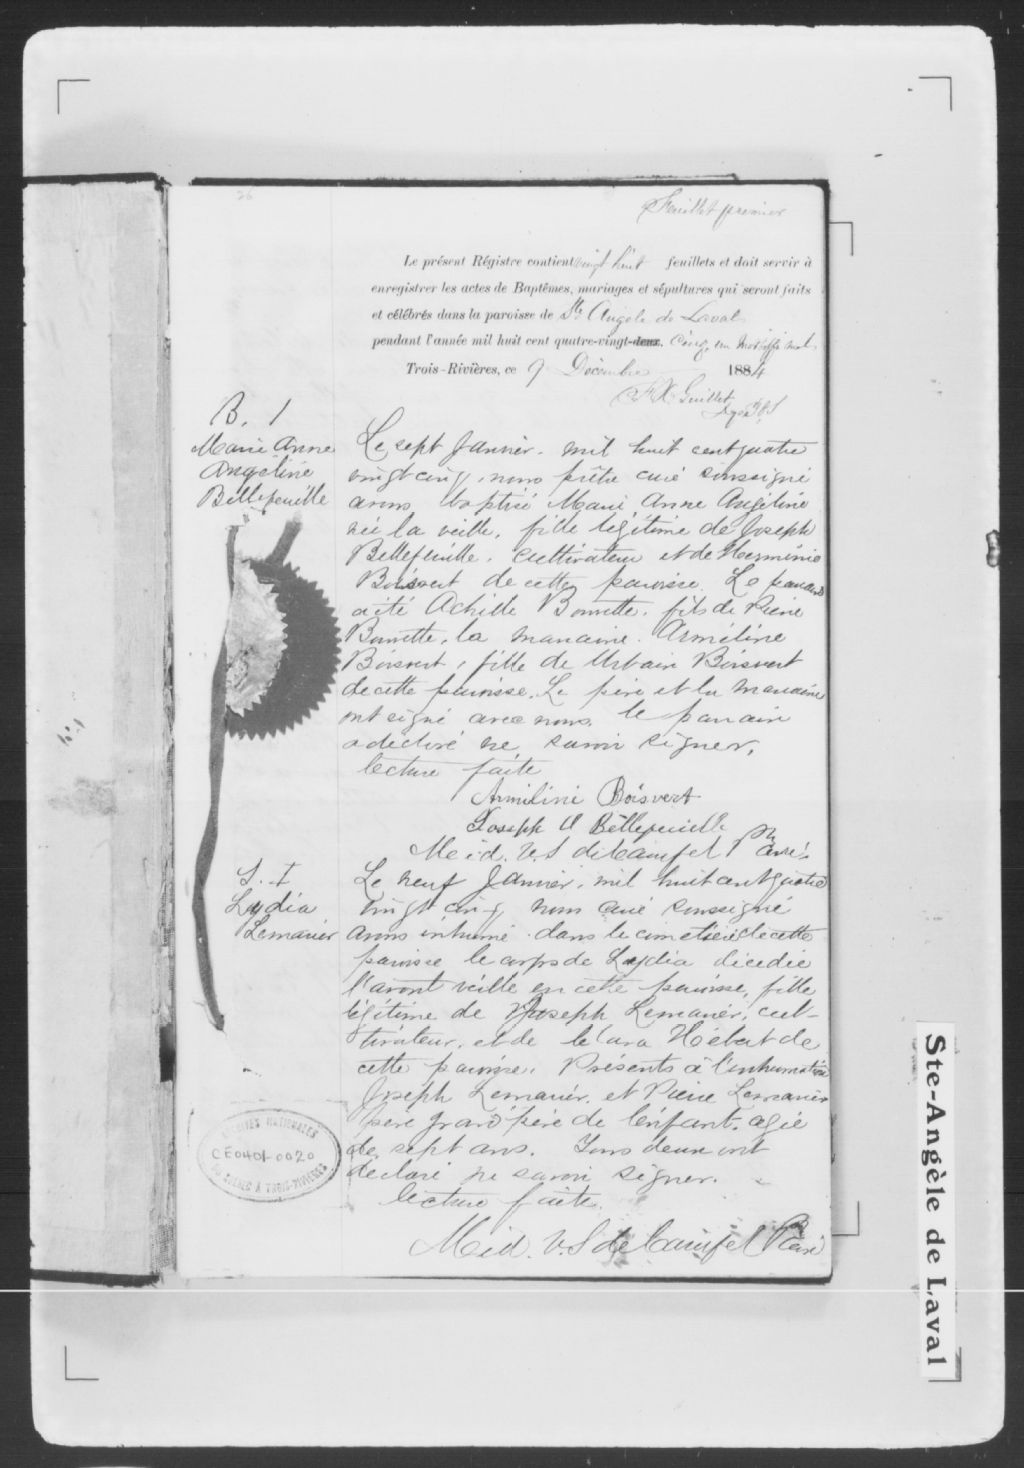 26
Feuillet premier
Le présent Régistre contient vingt huit feuillets et doit servir à
enregistrer les actes de Baptêmes, mariages et sépultures qui seront faits
et célébrés dans la paroisse de Ste Angele de Laval
pendant l'année mil huit cent quatre-vingt-deux. cinq, un mot
Trois-Rivières, ce 9 Décembre 1884
F X Guillet
B. 1
Marie Anne
Angéline
Bellefeuille
Le sept Janvier. mil huit cent quatre
vingt cinq, nous prêtre curé soussigné
avons baptisé Marie Anne Angéline
née la veille, fille légitime de Joseph
Bellefeuille. cultivateur et de Herménie
Boisvert de cette paroisse. Le parrain
a été Achille Bourrette. fils de Pierre
Bourrette, la marraine. Arméline
Boisvert, fille de Urbain Boisvert
de cette paroisse. Le père et la marraine
ont signé avec nous. le parrain
a déclaré ne savoir signer.
lecture faite
Armiline Boisvert
Joseph U Bellefeuille
Méd. V. S de Carufel Ptre Curé
S. I
Lydia
Lemarier
Le neuf Janvier, mil huit cent quatre
vingt cinq nous curé soussigné
avons inhumé dans le cimetière de cette
paroisse le corps de Lydia décédée
l'avant veille en cette paroisse, fille
légitime de Joseph Lemarier, cul-
tivateur, et de Clara Hébert de
cette paroisse. Présents à l'inhumation
Joseph Lemarier et Pierre Lemarier
père grand père de l'enfant, agée
de sept ans. Tous deux ont
déclaré ne savoir signer.
lecture faite.
Méd. V. S de Carufel Ptre Curé
ARCHIVES NATIONALES
CE0401-0020
DU QUÉBEC À TROIS-RIVIÈRES
Ste-Angèle de Laval